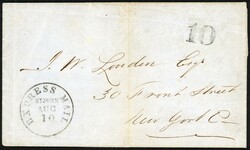 10
J. W. London Esq
30 Front Street
New York C
EXPRESS MAIL
AUG
10